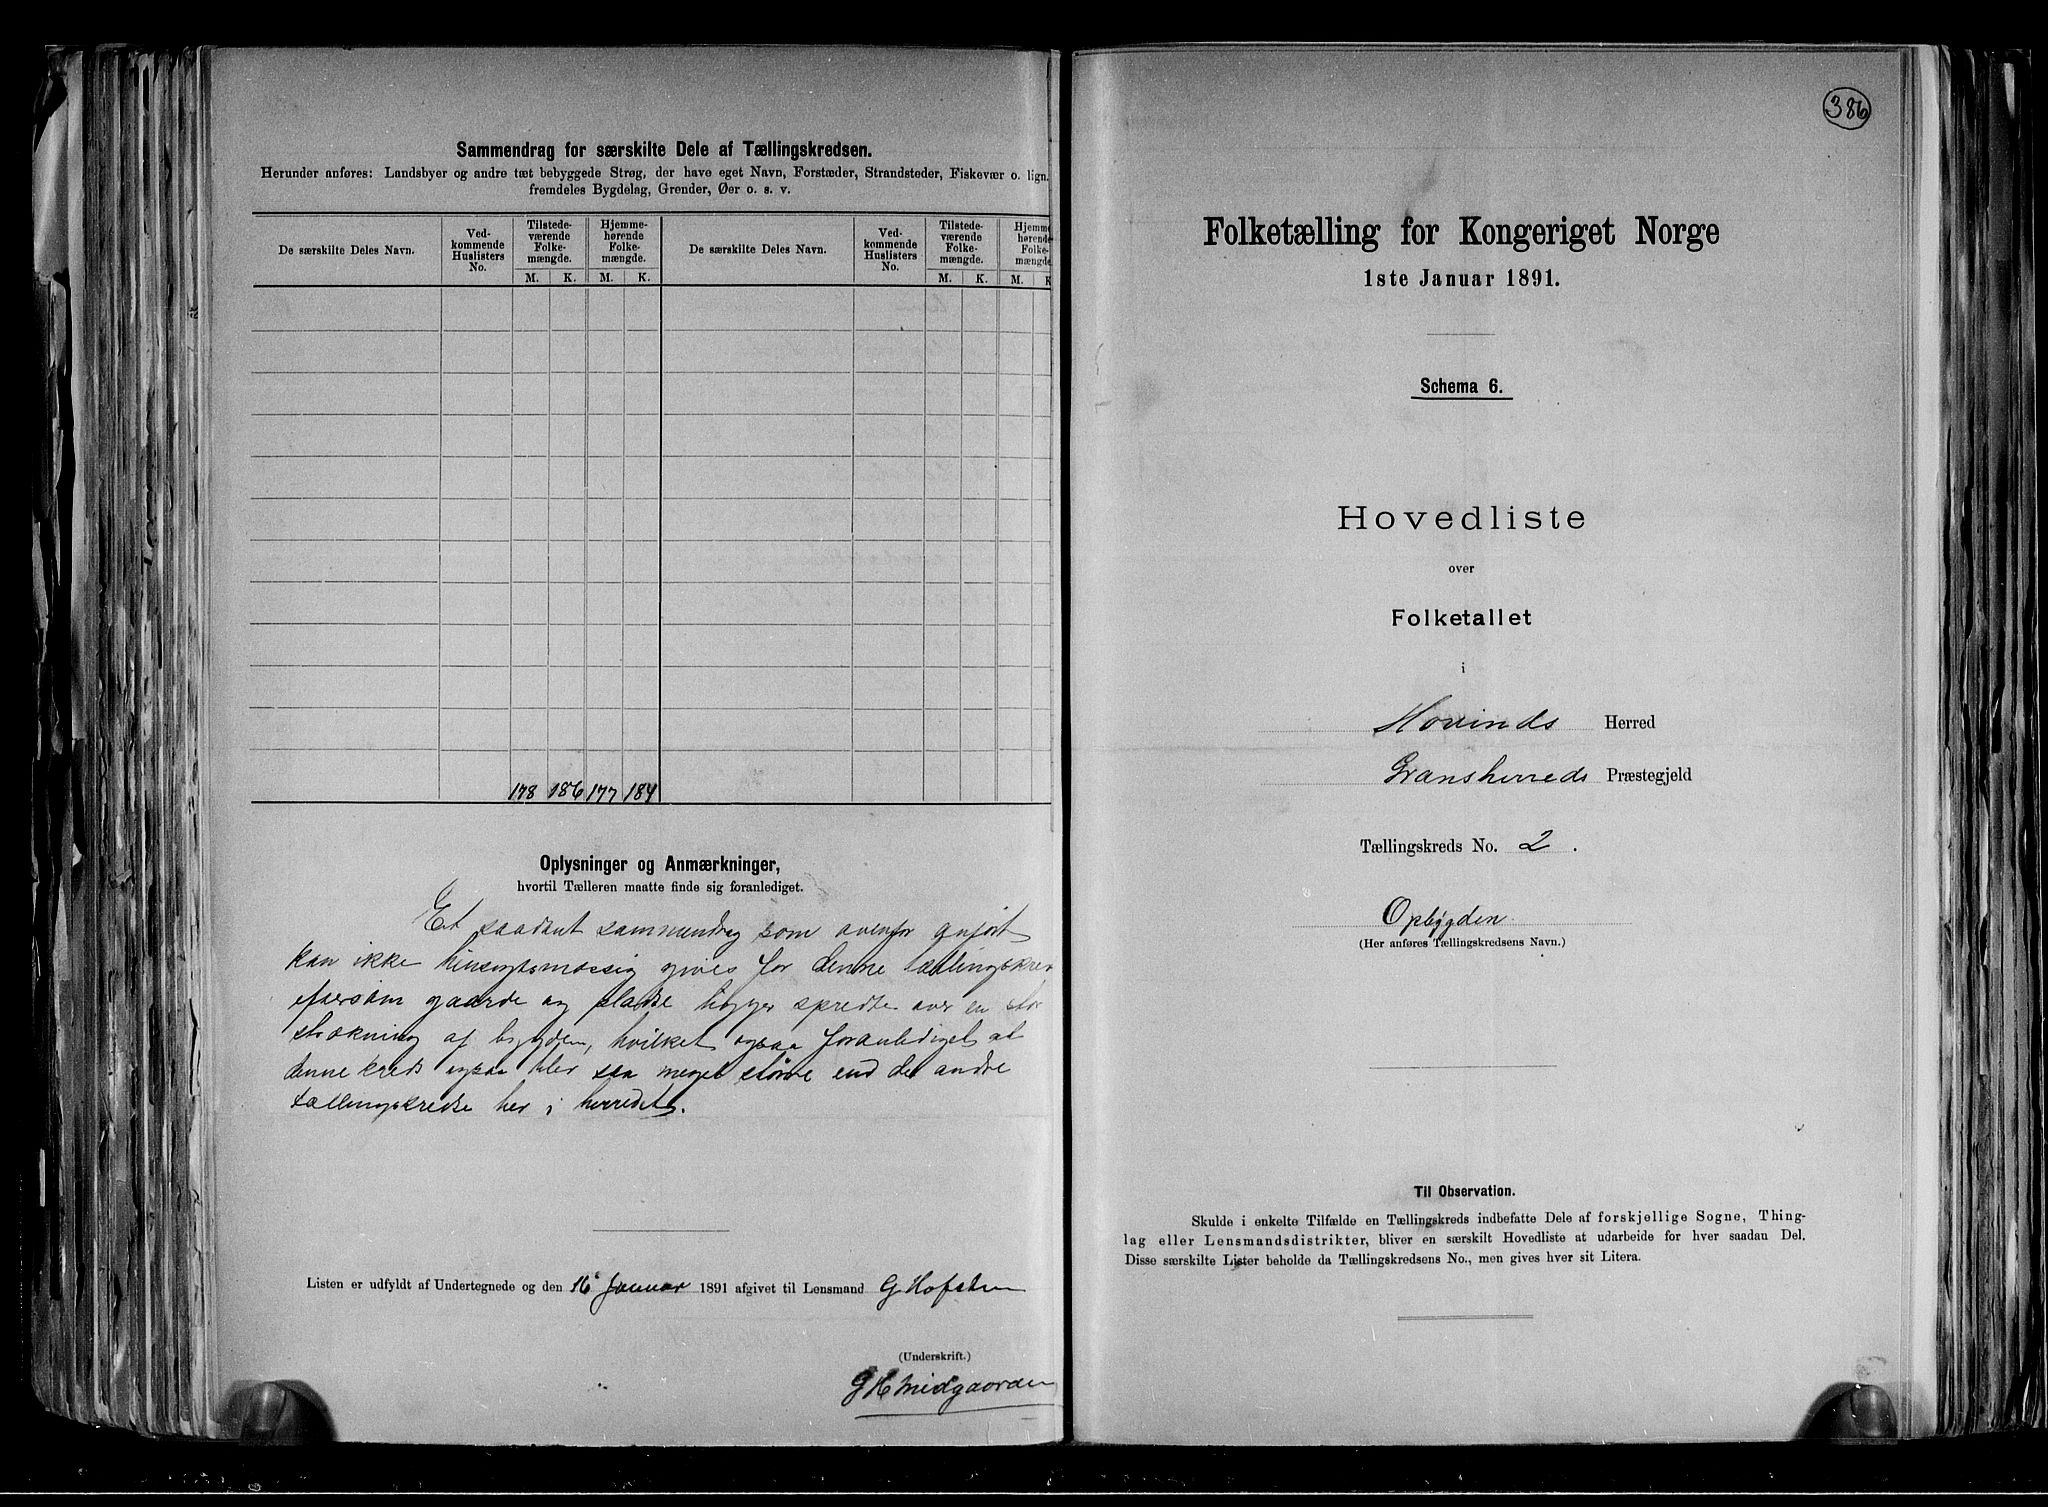 Sammendrag for særskilte Dele af Tællingskredsen.
Herunder anføres: Landsbyer og andre tæt bebyggede Strøg, der have eget Navn, Forstæder, Strandsteder, Fiskevær o. lign.
fremdeles Bygdelag, Grender, Øer o. s. v.
De særskilte Deles Navn.
Ved-
kommende
Huslisters
No.
Tilstede-
værende
Folke-
mængde.
M. K.
Hjemme-
hørende
Folke-
mængde.
M. K.
De særskilte Deles Navn.
Ved-
kommende
Huslisters
No.
Tilstede-
værende
Folke-
mængde.
M. K.
Hjemme
hørende
Folke-
mængde
M. K
178 186 177 184
Oplysninger og Anmærkninger,
hvortil Tælleren maatte finde sig foranlediget.
Et saadant sammendrag som ovenfor anført
kan ikke hensigtsmæssig gives for denne tællingskred
eftersom gaarde og pladse ligger spredte over en stor
strækning af bygden, hvilket ogsaa foranlediget at
denne kreds ogsaa blev saa meget større end de andre
tællingskredse her i herredet.
Listen er udfyldt af Undertegnede og den 16 Januar 1891 afgivet til Lensmand G Hofsten
(Underskrift.)
G H Midgaarden
386
Folketælling for Kongeriget Norge
1ste Januar 1891.
Schema 6.
Hovedliste
over
Folketallet
i
Hovinds Herred
Gransherreds Præstegjeld
Tællingskreds No. 2.
Opbygden
(Her anføres Tællingskredsens Navn.)
Til Observation.
Skulde i enkelte Tilfælde en Tællingskreds indbefatte Dele af forskjellige Sogne, Thing-
lag eller Lensmandsdistrikter, bliver en særskilt Hovedliste at udarbeide for hver saadan Del.
Disse særskilte Lister beholde da Tællingskredsens No., men gives hver sit Litera.